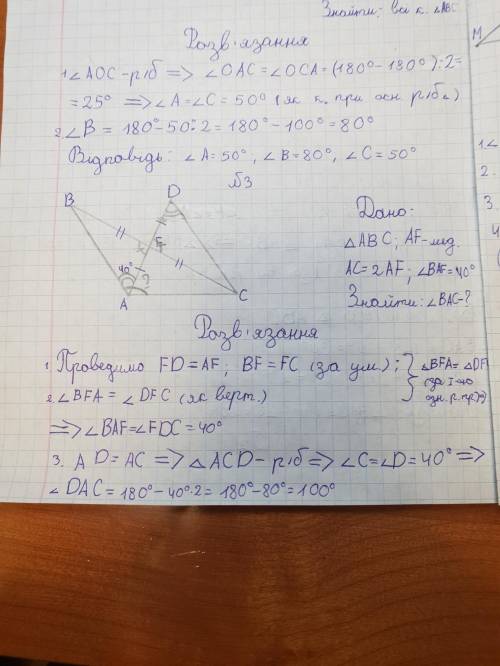 Знайти: всі к. ∠ABC
Розв'язання
M
1 ∠AOC - р/б => ∠OAC = ∠OCA = (180° - 130°):2=
= 25° => ∠A = ∠C = 50° (як к. при осн р/б ∆)
2. ∠B = 180° - 50°·2 = 180° - 100° = 80°
Відповідь: ∠A = 50°, ∠B = 80°, ∠C = 50°
№3
1 ∠
2.
3.
4
B
D
F
40°
?
A
C
Дано:
△ABC; AF - мед.
AC = 2AF; ∠BAF = 40°
Знайти: ∠BAC - ?
Розв'язання
1 Проведимо FD = AF; BF = FC (за ум.); } △BFA = △DF
(за I-ою
озн. р. тр.)
2. ∠BFA = ∠DFC (як верт.)
=> ∠BAF = ∠FDC = 40°
3. AD = AC => △ACD - р/б => ∠C = ∠D = 40° =>
∠DAC = 180° - 40°·2 = 180° - 80° = 100°